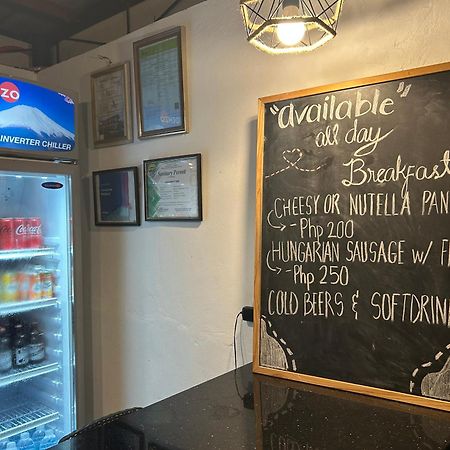 ZO
INVERTER CHILLER
Coca-Cola
Sanitary Permit
"available"
all day
Breakfast
CHEESY OR NUTELLA PAN
- Php 200
HUNGARIAN SAUSAGE W/ F
- Php 250
COLD BEERS & SOFTDRINK